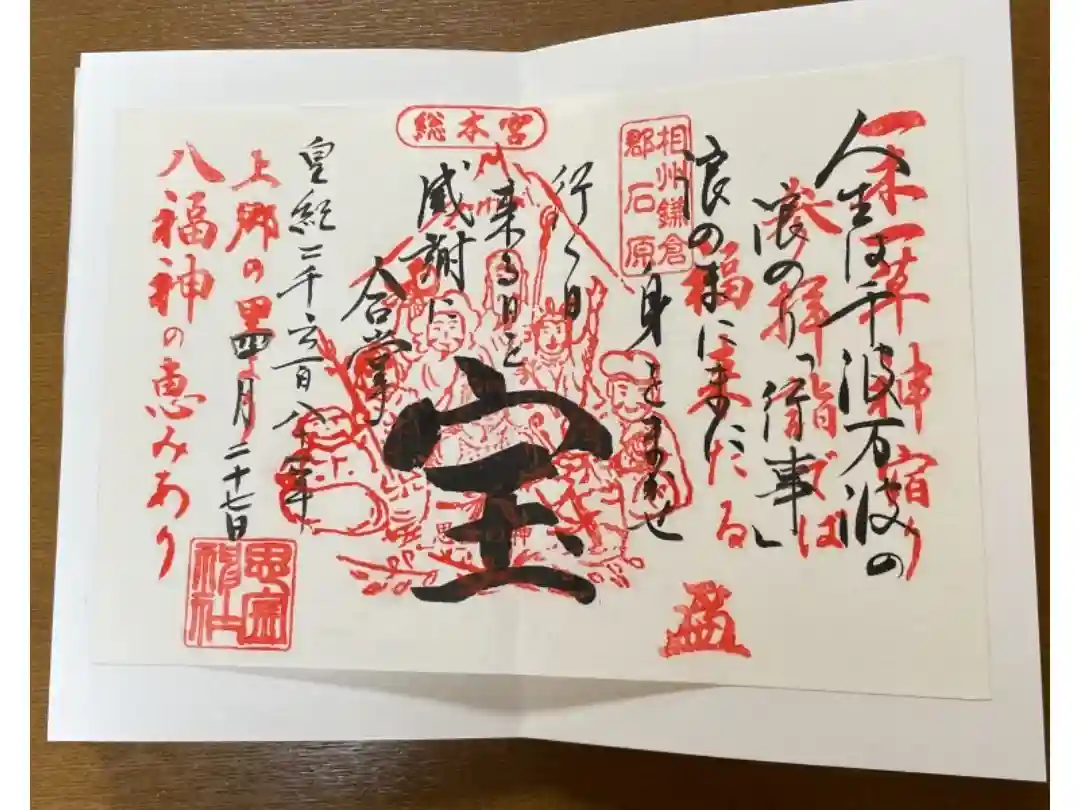 一木一草神宿り
拝詣では
福来たる
人生は千波万波の
浪のり「行事」
浪のまにまに
身をまかせ
行く日
来る日を
感謝に
合掌
宝
皇紀二千六百八十年
四月二十七日
総本宮
相州鎌倉
郡石原
上郷の里
八福神の恵みあり
思金
神社